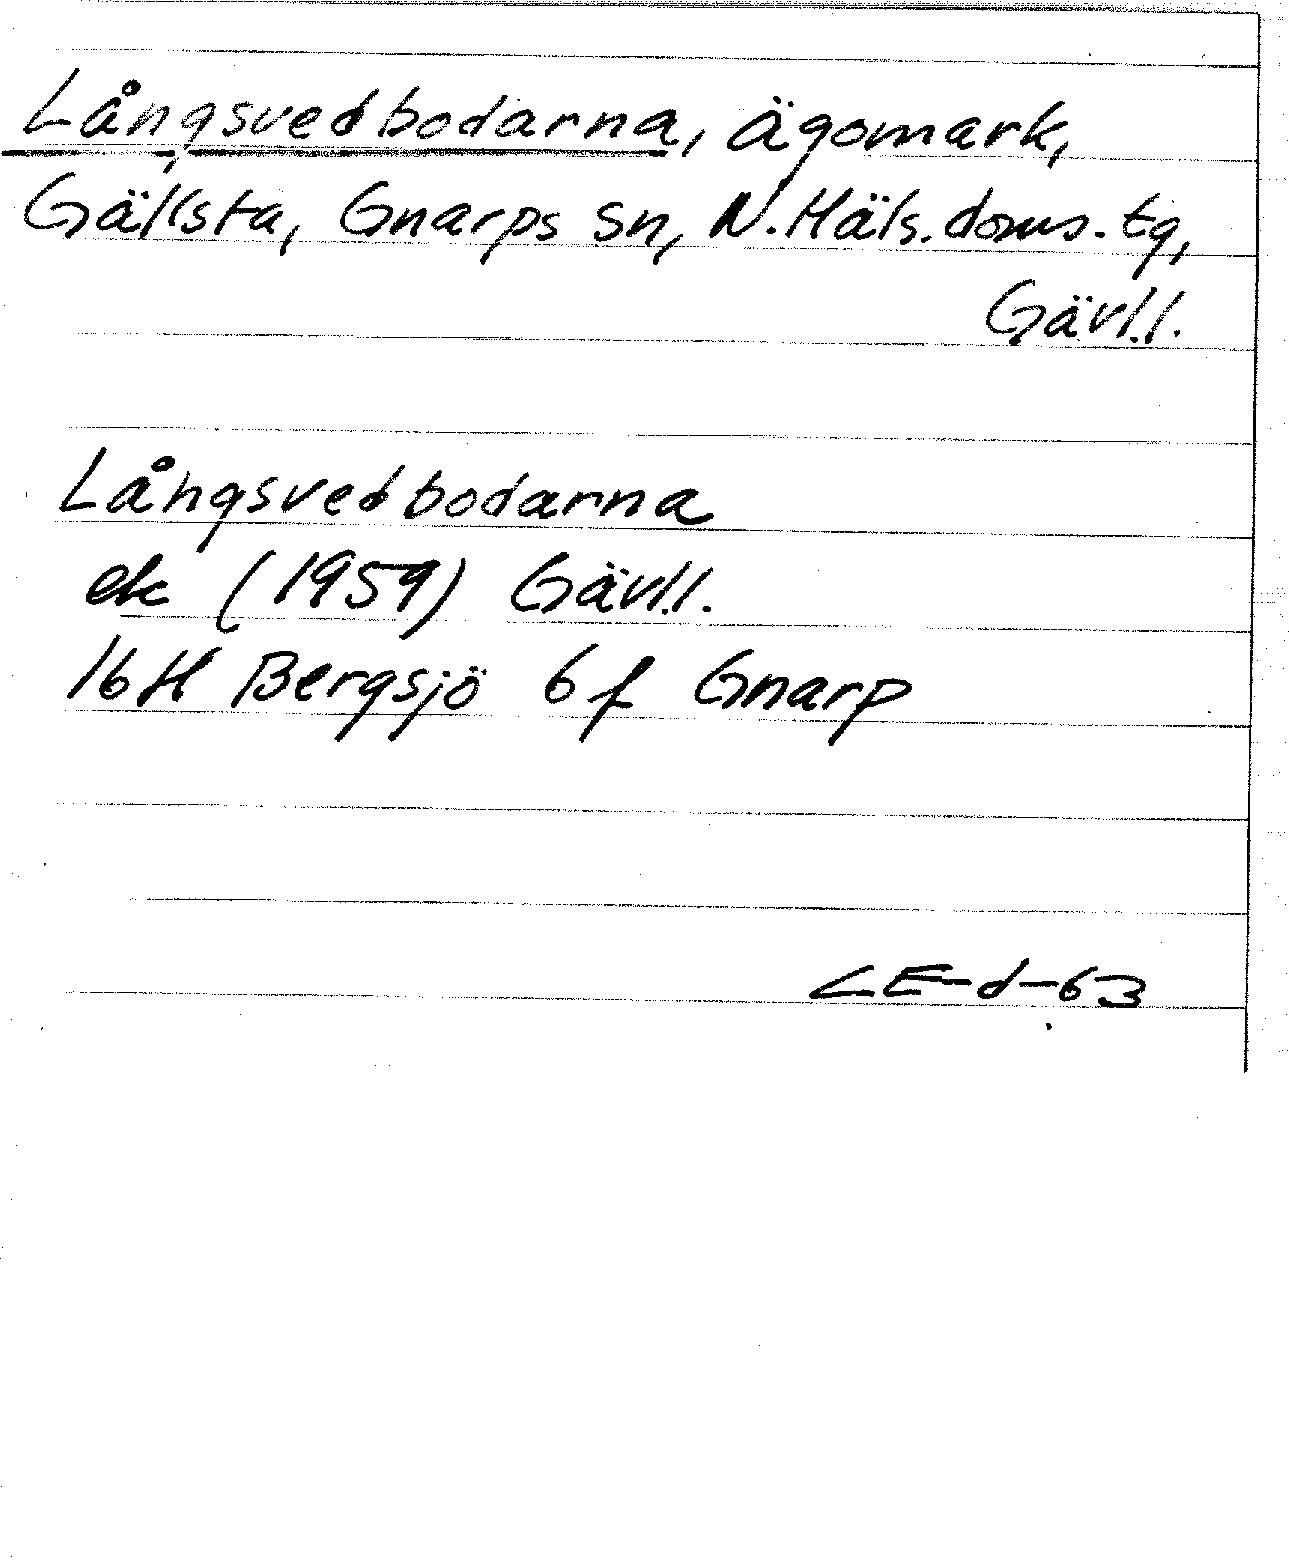 Långsvedbodarna, Ägomark,
Gällsta, Gnarps sn, N. Häls. doms. tg,
Gävl.l.
Långsvedbodarna
ek (1959) Gävl.l.
16H Bergsjö 6f Gnarp
LE-d-63